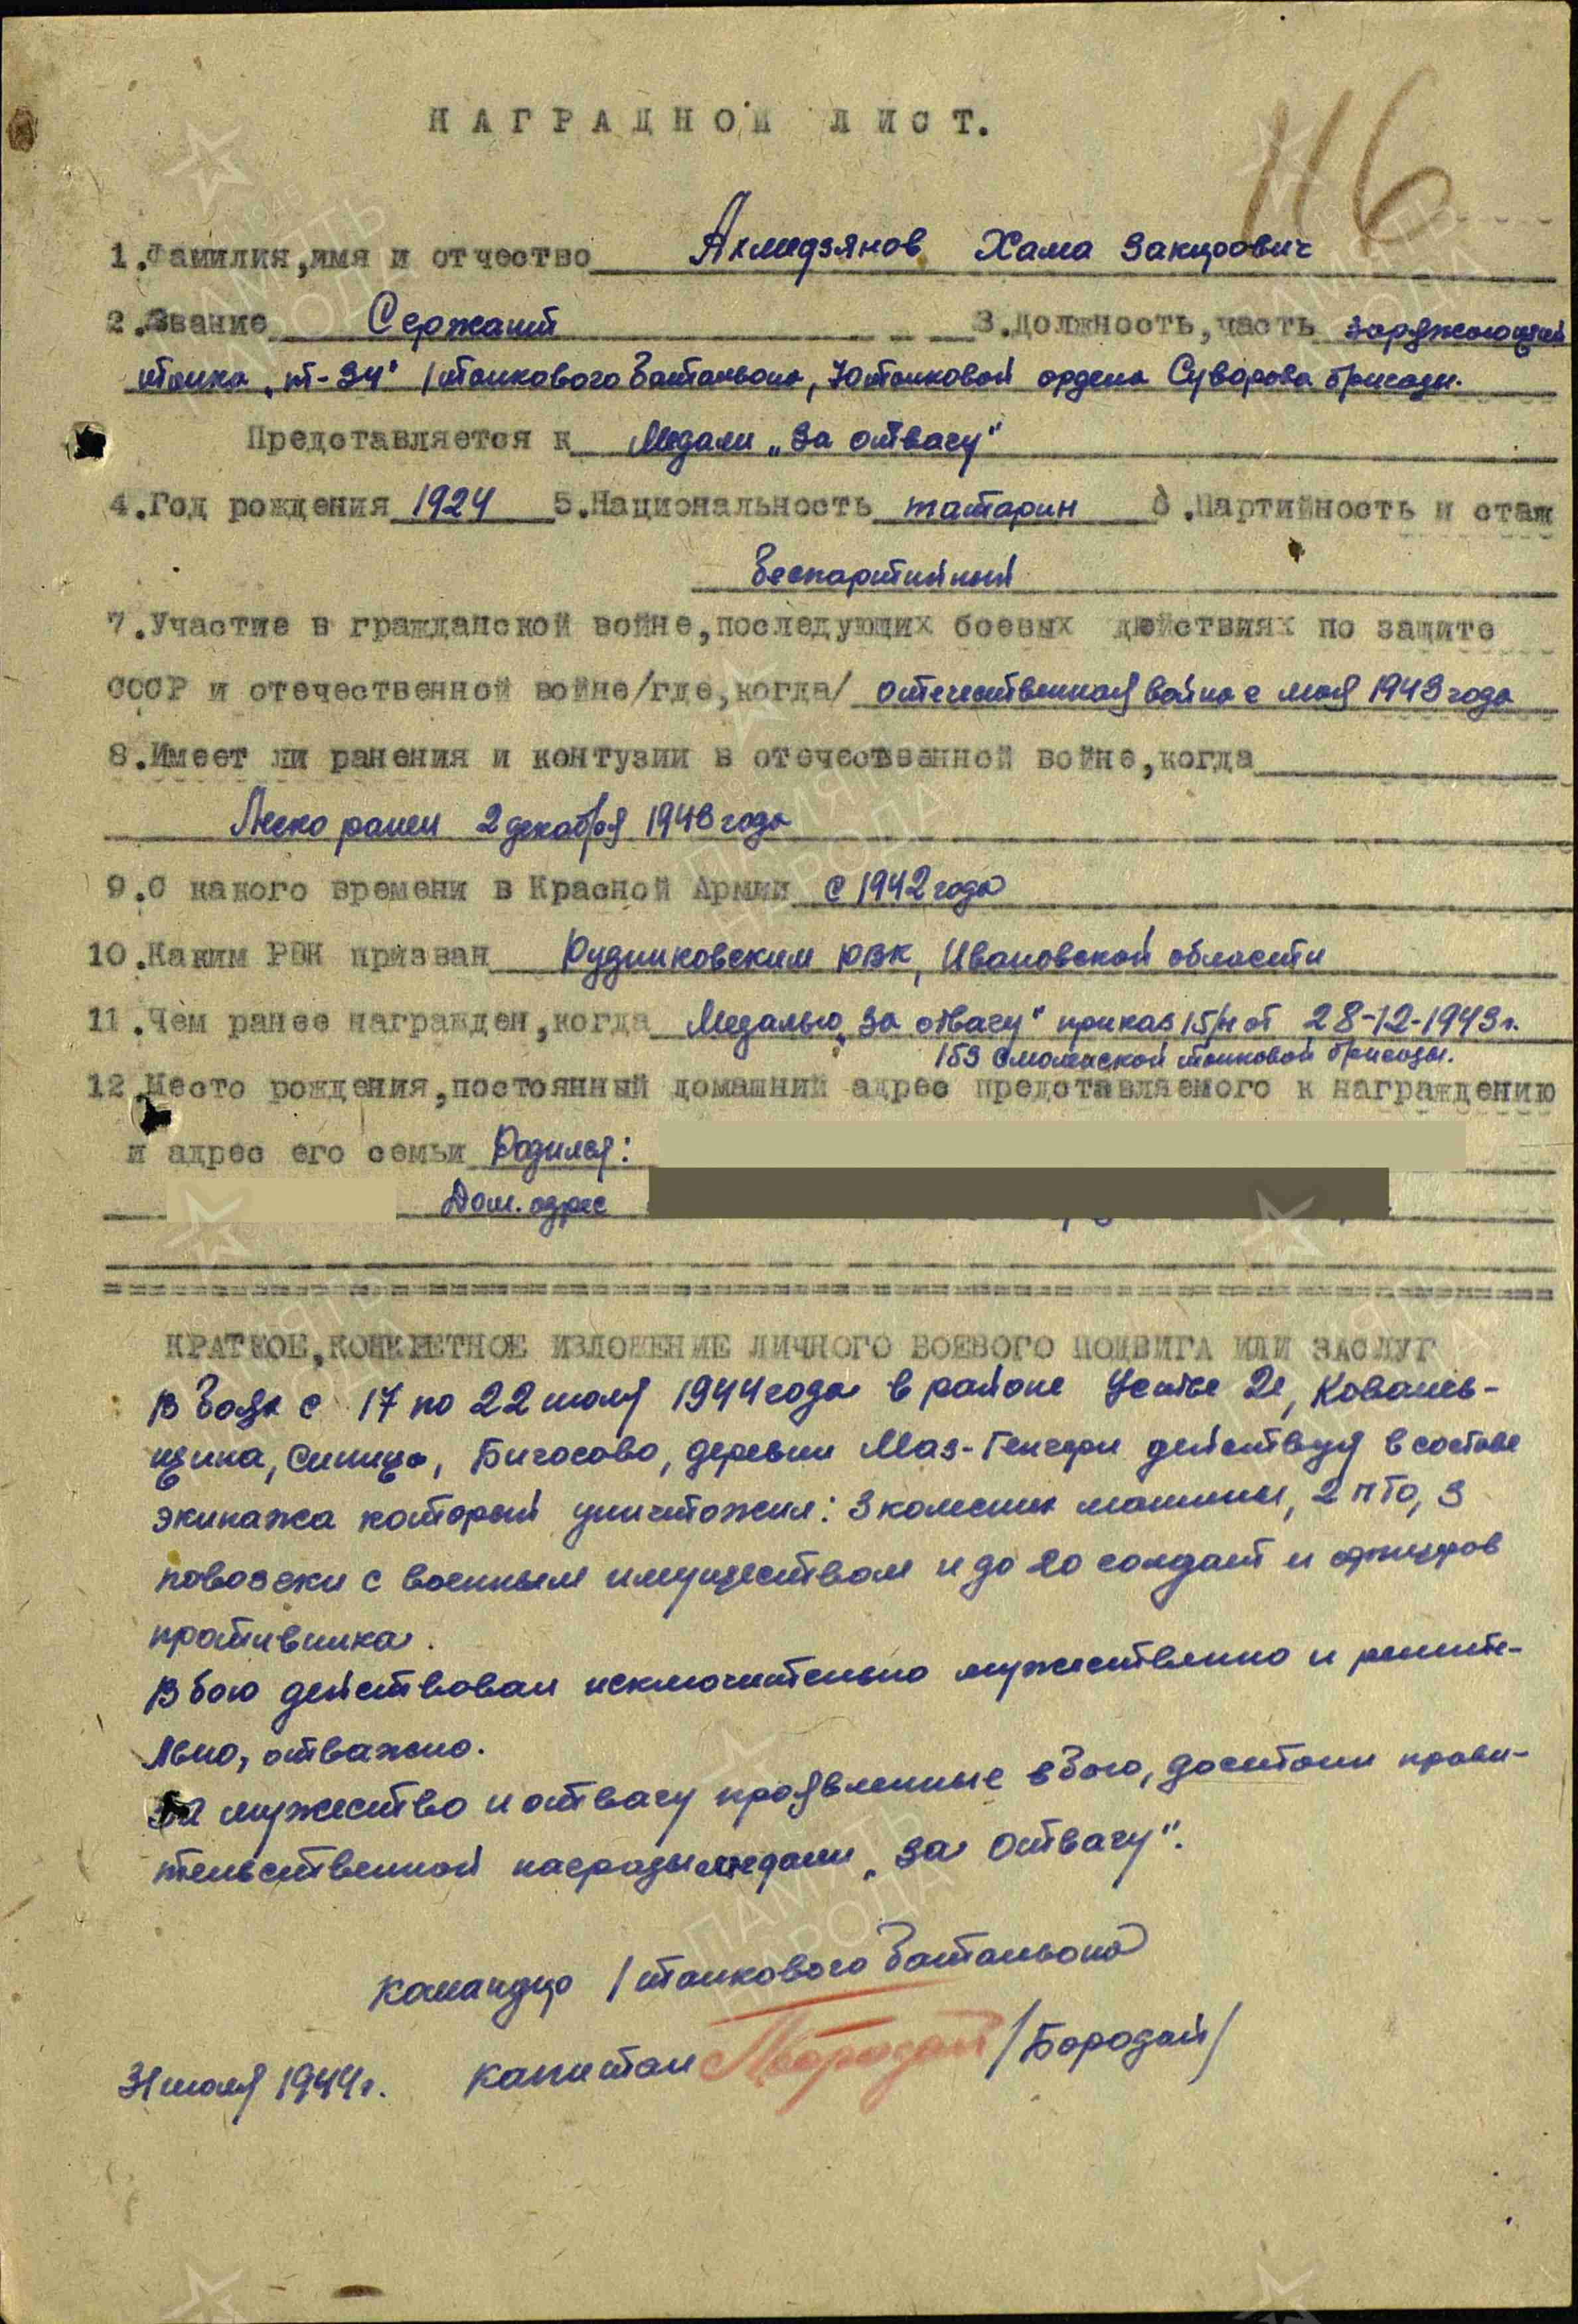 116
НАГРАДНОЙ ЛИСТ.
1.Фамилия,имя и отчество Ахмедзянов Хама Закирович
2.Звание Сержант 3.Должность,часть заряжающий
танка „т-34" 1 танкового батальона, 10 танковой ордена Суворова бригады.
Представляется к Медали „За отвагу"
4.Год рождения 1924 5.Национальность татарин 6.Партийность и стаж
беспартийный
7.Участие в гражданской войне,последующих боевых действиях по защите
СССР и отечественной войне/где,когда/ отечественная война с мая 1943 года
8.Имеет ли ранения и контузии в отечественной войне,когда
Легко ранен 2 декабря 1943 года
9.С какого времени в Красной Армии с 1942 года
10.Каким РВК призван РВК, Ивановской области
11.Чем ранее награжден,когда Медалью „За отвагу" приказ 15/н от 28-12-1943г.
153 Смоленской танковой бригады.
12.Место рождения,постоянный домашний адрес представляемого к награждению
и адрес его семьи Родился:
Дом. адрес
КРАТКОЕ,КОНКРЕТНОЕ ИЗЛОЖЕНИЕ ЛИЧНОГО БОЕВОГО ПОДВИГА ИЛИ ЗАСЛУГ
В боях с 17 по 22 июля 1944 года в районе Устье 2е, Ковалев-
щина, Синица, Бигосово, деревни Маз-Генгери действуя в составе
экипажа который уничтожил: 3 колесных машины, 2 ПТО, 3
повозки с военным имуществом и до 20 солдат и офицеров
противника.
В бою действовал исключительно мужественно и решите-
льно, отважно.
За мужество и отвагу проявленные в бою, достоин прави-
тельственной награды медали „За Отвагу".
Командир 1 танкового батальона
31 июля 1944г. капитан Бородай /Бородай/
ПАМЯТЬ
НАРОДА